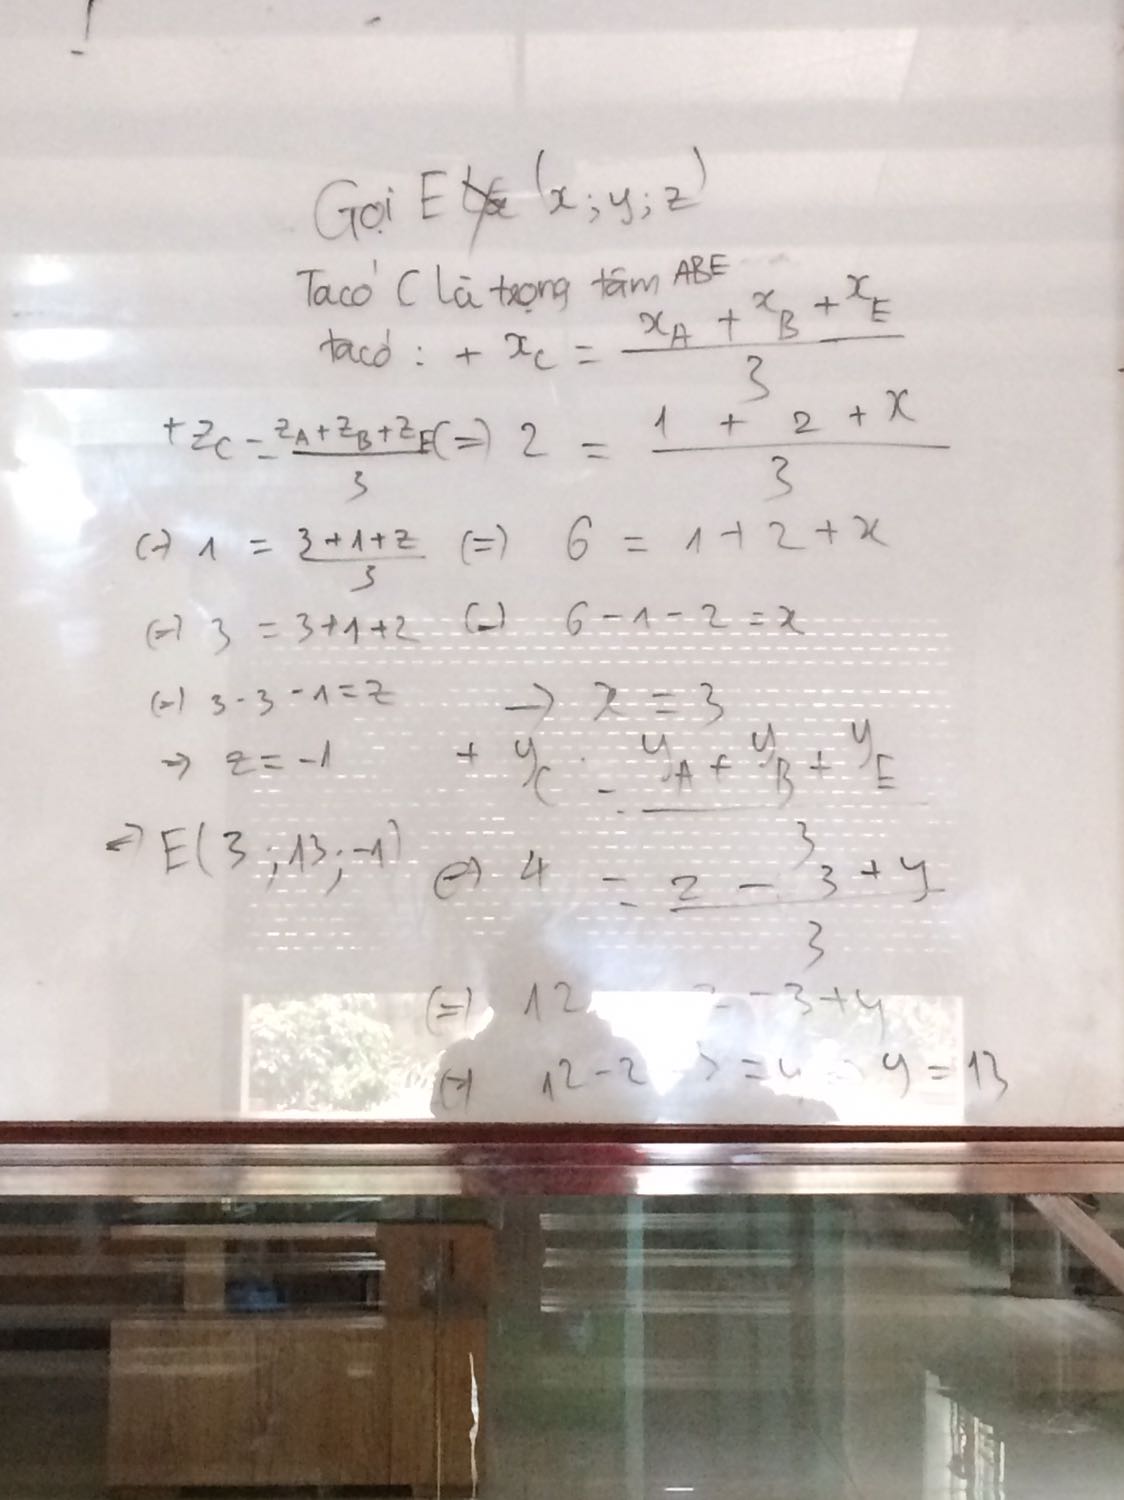 Gọi E (x; y; z)
Ta có C là trọng tâm ABE
ta có: + x_C = (x_A + x_B + x_E)/3
(=) 2 = (1 + 2 + x)/3
(=) 6 = 1 + 2 + x
(=) 6 - 1 - 2 = x
→ x = 3
+ y_C = (y_A + y_B + y_E)/3
(=) 4 = (2 - 3 + y)/3
(=) 12 - 3 + y
(=) 12 - 2 = y y = 13
+ z_C = (z_A + z_B + z_E)/3
(=) 1 = (3 + 1 + z)/3
(=) 3 = 3 + 1 + z
(=) 3 - 3 - 1 = z
→ z = -1
=) E(3; 13; -1)